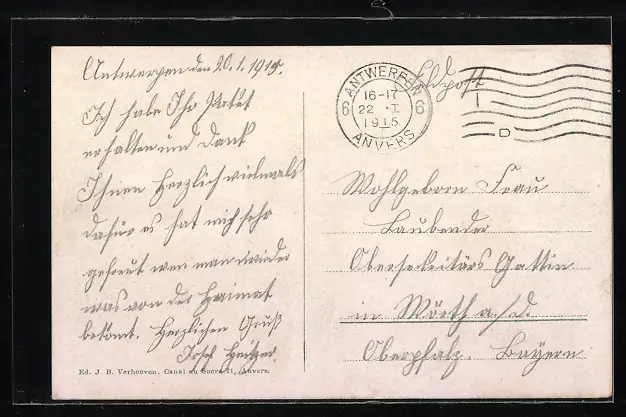 Antwerpen den 20.1.1915.
Ich habe Ihr Paket
erhalten und Dank
Ihnen Herzlich vielmals
dafür es hat mich sehr
gefreut wen man wieder
was von der Heimat
bekomt. Herzlichen Gruß
Josef
Ed. J. B. Verhoeven, Canal au Sucre 21, Anvers.
Feldpost
ANTWERPEN
16-17
6 22 I 6
1915
ANVERS
D
Wohlgeborn Frau
Laubender
Obersekretärs Gattin
in Wörth a./d.
Oberpfalz. Bayern